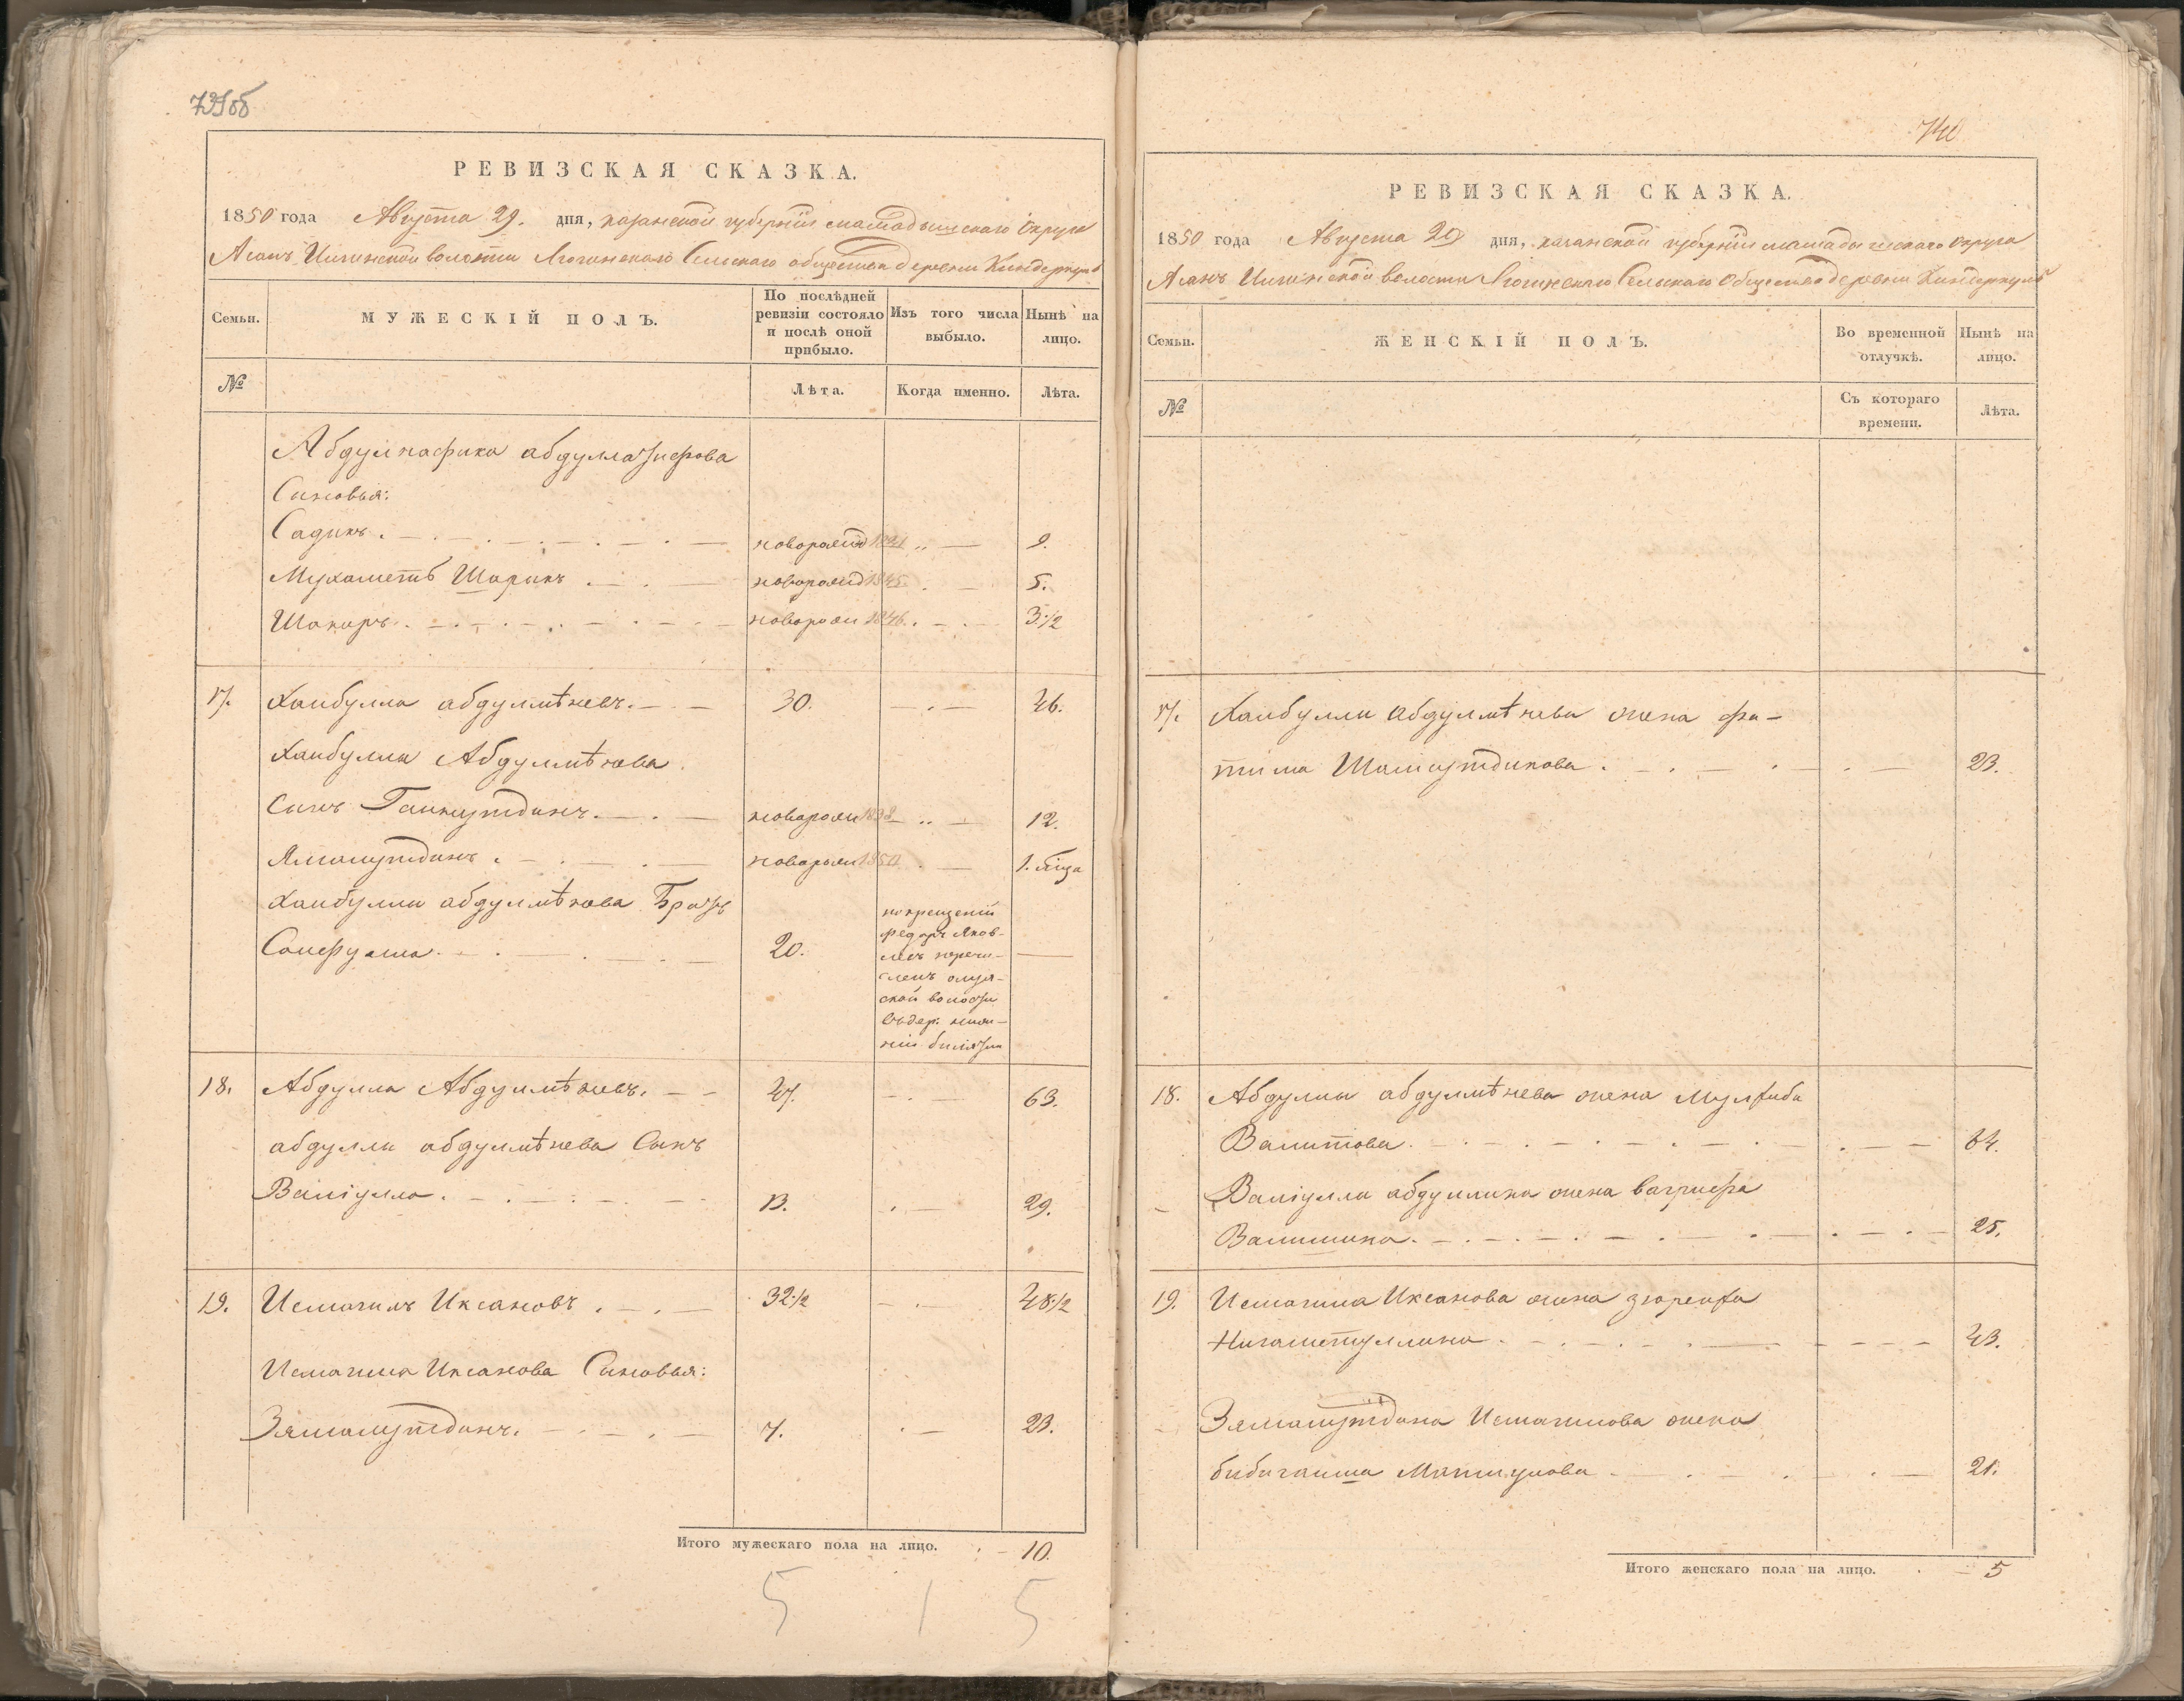 739об
РЕВИЗСКАЯ СКАЗКА.
1850 года Августа 29. дня, казанской губерніи мамадышскаго округа
Асанъ Илгинской волости Сельскаго общества деревни Киндеркуль
Семьи.
МУЖЕСКІЙ ПОЛЪ.
По послѣдней ревизіи состояло и послѣ оной прибыло.
Изъ того числа выбыло.
Нынѣ на лицо.
№
Лѣта.
Когда именно.
Лѣта.
Абдулнафика
Сыновья:
Садикъ новорожд 1841 9.
Мухаметъ Шарипъ новорожд 1845 5.
Шакиръ новорож 1846 3 1/2
17. Хаибулла абдулмѣневъ. 30. 46.
Хаибуллы Абдулмѣнова
Сынъ Гаинутдинъ. новорож 1838 12.
Ямалутдинъ новорож 1850 1.
Хаибуллы абдулмѣнова Братъ
20.
новокрещеній
федоръ Яков-
левъ перечи-
сленъ
ской волости
въ дер.
18. Абдулла Абдулмѣневъ. 47. 63.
абдуллы абдулмѣнева Сынъ
Валіулла. 13. 29.
19. Исмагилъ Иксановъ 32 1/2 48 1/2
Исмагила Иксанова Сыновья:
Зямалутдинъ. 7. 23.
Итого мужескаго пола на лицо. 10.
5 1 5
740
РЕВИЗСКАЯ СКАЗКА.
1850 года Августа 29 дня, казанской губерніи мамадышскаго округа
Асанъ Илгинской волости Сельскаго Общества деревни Киндеркуль
Семьи.
ЖЕНСКІЙ ПОЛЪ.
Во временной отлучкѣ.
Нынѣ на лицо.
№
Съ котораго времени.
Лѣта.
17. Хаибуллы абдулмѣнева жена фа-
тима 23.
18. Абдуллы абдулмѣнева жена
Валитова. 64.
Валіуллы абдуллина жена
25.
19. Исмагила Иксанова жена
Нигаметуллина 43.
Зямалутдина Исмагилова жена
21.
Итого женскаго пола на лицо. 5